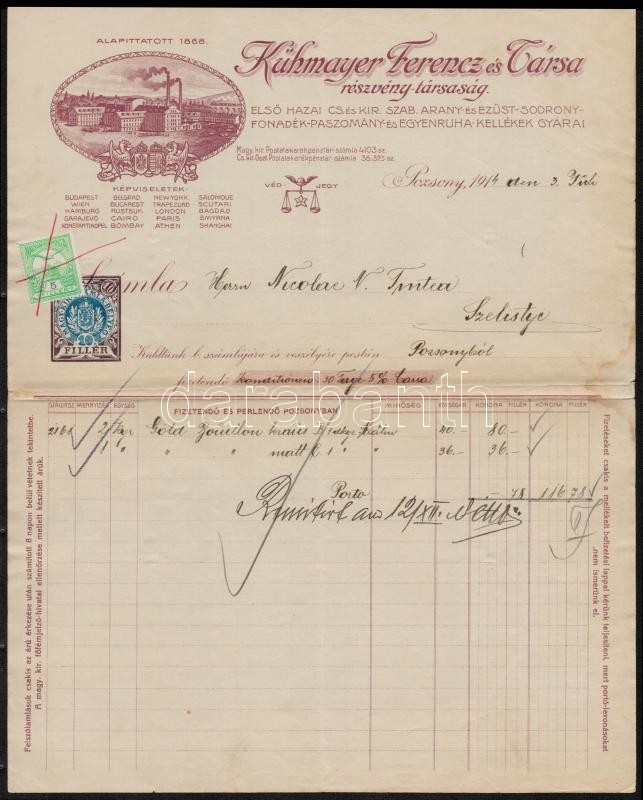 ALAPITTATOTT 1868.
Kühmayer Ferencz és Társa
részvény-társaság.
ELSŐ HAZAI CS. és KIR. SZAB. ARANY- és EZÜST-SODRONY-
FONADÉK-PASZOMÁNY- és EGYENRUHA-KELLÉKEK GYÁRAI
Magy. kir. Postatakarékpénztár-számla 4103 sz.
Cs. kir. Oszt. Postatakarékpénztár-számla 36.323 sz.
VÉD JEGY
KÉPVISELETEK:
BUDAPEST BELGRAD NEW-YORK SALONIQUE
WIEN BUCAREST TRAPEZUND SCUTARI
HAMBURG RUSTSUK LONDON BAGDAD
SARAJEVO CAIRO PARIS SMYRNA
KONSTANTINOPEL BOMBAY ATHEN SHANGHAI
Pozsony, 1914 den 3. Juli
5
10
FILLÉR
Számla Herrn Nicolae V. Tintea
Szelistye
Küldtünk b. számlájára és veszélyére postán Pozsonyból
fizetendő Konditionen: 30 Tage 5% Cassa
darabanth
SZÁLLITSZ. MENNYISÉG EGYSÉG FIZETENDŐ ÉS PERLENDŐ POZSONYBAN MINŐSÉG EGYSÉGÁR KORONA FILLÉR KORONA FILLÉR
Gold Bouillon kraus 40.- 80.-
" " matt " " 36.- 36.-
Porto -.78 116 78
12/XII. Netto
Felszólamlások csakis az árú érkezése után számitott 8 napon belül vétetnek tekintetbe.
A magy. kir. főfémjelző-hivatal ellenőrzése mellett készitett árúk.
Fizetéseket csakis a mellékelt befizetési lappal kérünk teljesiteni, mert portó-levonásokat
nem ismerünk el.